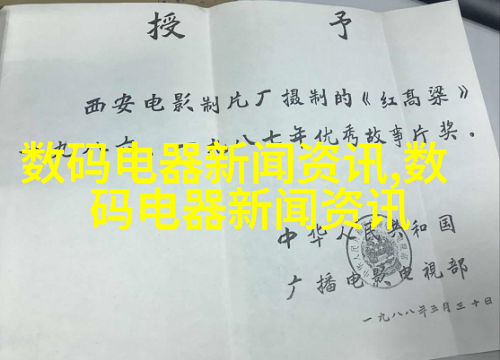 授 予
西安电影制片厂摄制的《红高梁》
一九八六、一九八七年优秀故事片奖。
数码电器新闻资讯,数
码电器新闻资讯
中华人民共和国
广播电影电视部
一九八八年三月三十日